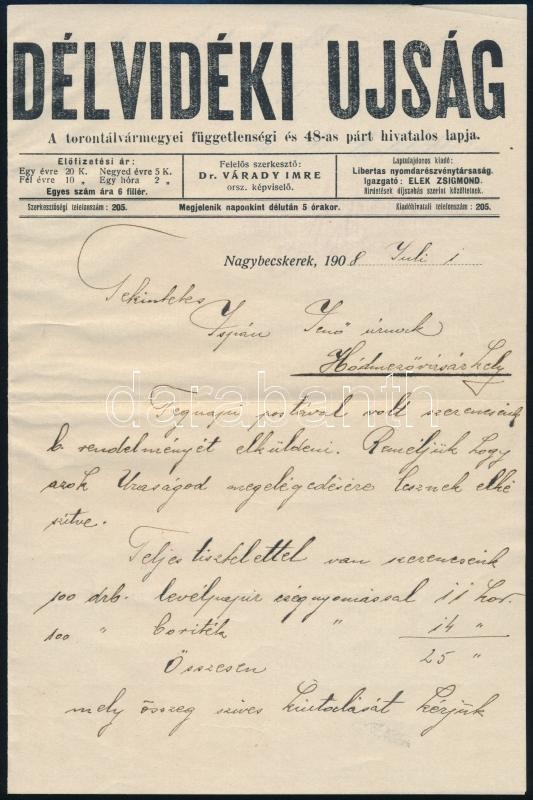 DÉLVIDÉKI UJSÁG
A torontálvármegyei függetlenségi és 48-as párt hivatalos lapja.
Előfizetési ár:
Egy évre 20 K. Negyed évre 5 K.
Fél évre 10 „ Egy hóra 2 „
Egyes szám ára 6 fillér.
Felelős szerkesztő:
Dr. VÁRADY IMRE
orsz. képviselő.
Laptulajdonos kiadó:
Libertas nyomdarészvénytársaság.
Igazgató: ELEK ZSIGMOND.
Hirdetések díjszabás szerint közöltetnek.
Szerkesztőségi telefonszám: 205.
Megjelenik naponkint délután 5 órakor.
Kiadóhivatali telefonszám: 205.
Nagybecskerek, 1908 Juli 1
Tekintetes
Ispán Jenő úrnak
Hódmezővásárhely
darabanth
Tegnapi postával volt szerencsénk
b. rendelményét elküldeni. Reméljük hogy
azok Uraságod megelégedésére lesznek elké
szitve.
Teljes tisztelettel van szerencsénk
100 drb. levélpapir cégnyomással 11 kor.
100 " boriték " 14 "
Összesen 25 "
mely összeg szives kiutalását kérjük